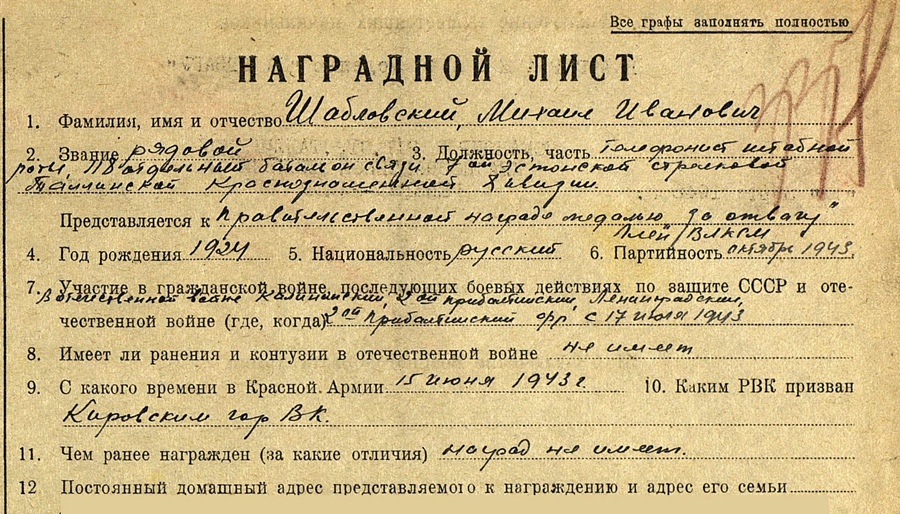 Все графы заполнять полностью
НАГРАДНОЙ ЛИСТ
1. Фамилия, имя и отчество Шабловский, Михаил Иванович
2. Звание рядовой 3. Должность, часть телефонист штабной
роты, отдельный батальон связи 7ой Эстонской стрелковой
Таллинской Краснознаменной Дивизии.
Представляется к правительственной награде медалью "За отвагу"
член ВЛКСМ
4. Год рождения 1924 5. Национальность русский 6. Партийность октябрь 1943.
7. Участие в гражданской войне, последующих боевых действиях по защите СССР и оте-
В отечественной войне Калининский, 2ой прибалтийский, Ленинградский,
чественной войне (где, когда) 2ой Прибалтийский фр. с 17 июля 1943
8. Имеет ли ранения и контузии в отечественной войне не имеет
9. С какого времени в Красной Армии 15 июня 1943 г. 10. Каким РВК призван
Кировским гор ВК.
11. Чем ранее награжден (за какие отличия) наград не имеет.
12 Постоянный домашный адрес представляемого к награждению и адрес его семьи